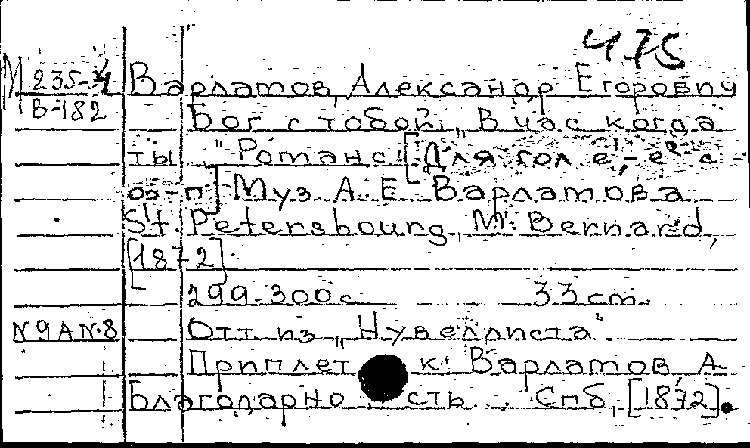 475
М 235-4 Варламов, Александр Егорович
В-182 Бог с тобой! „В час когда
ты..." Романс. [Для гол. e¹-e² с
ф-п] Муз. А. Е. Варламова
St. Petersbourg, M. Bernard,
[1872].
299-300 с. 33 cm.
N9AN.8 Отт. из „Нувеллиста".
Приплет. к: Варламов А.
Благодарность... Спб, [1872].